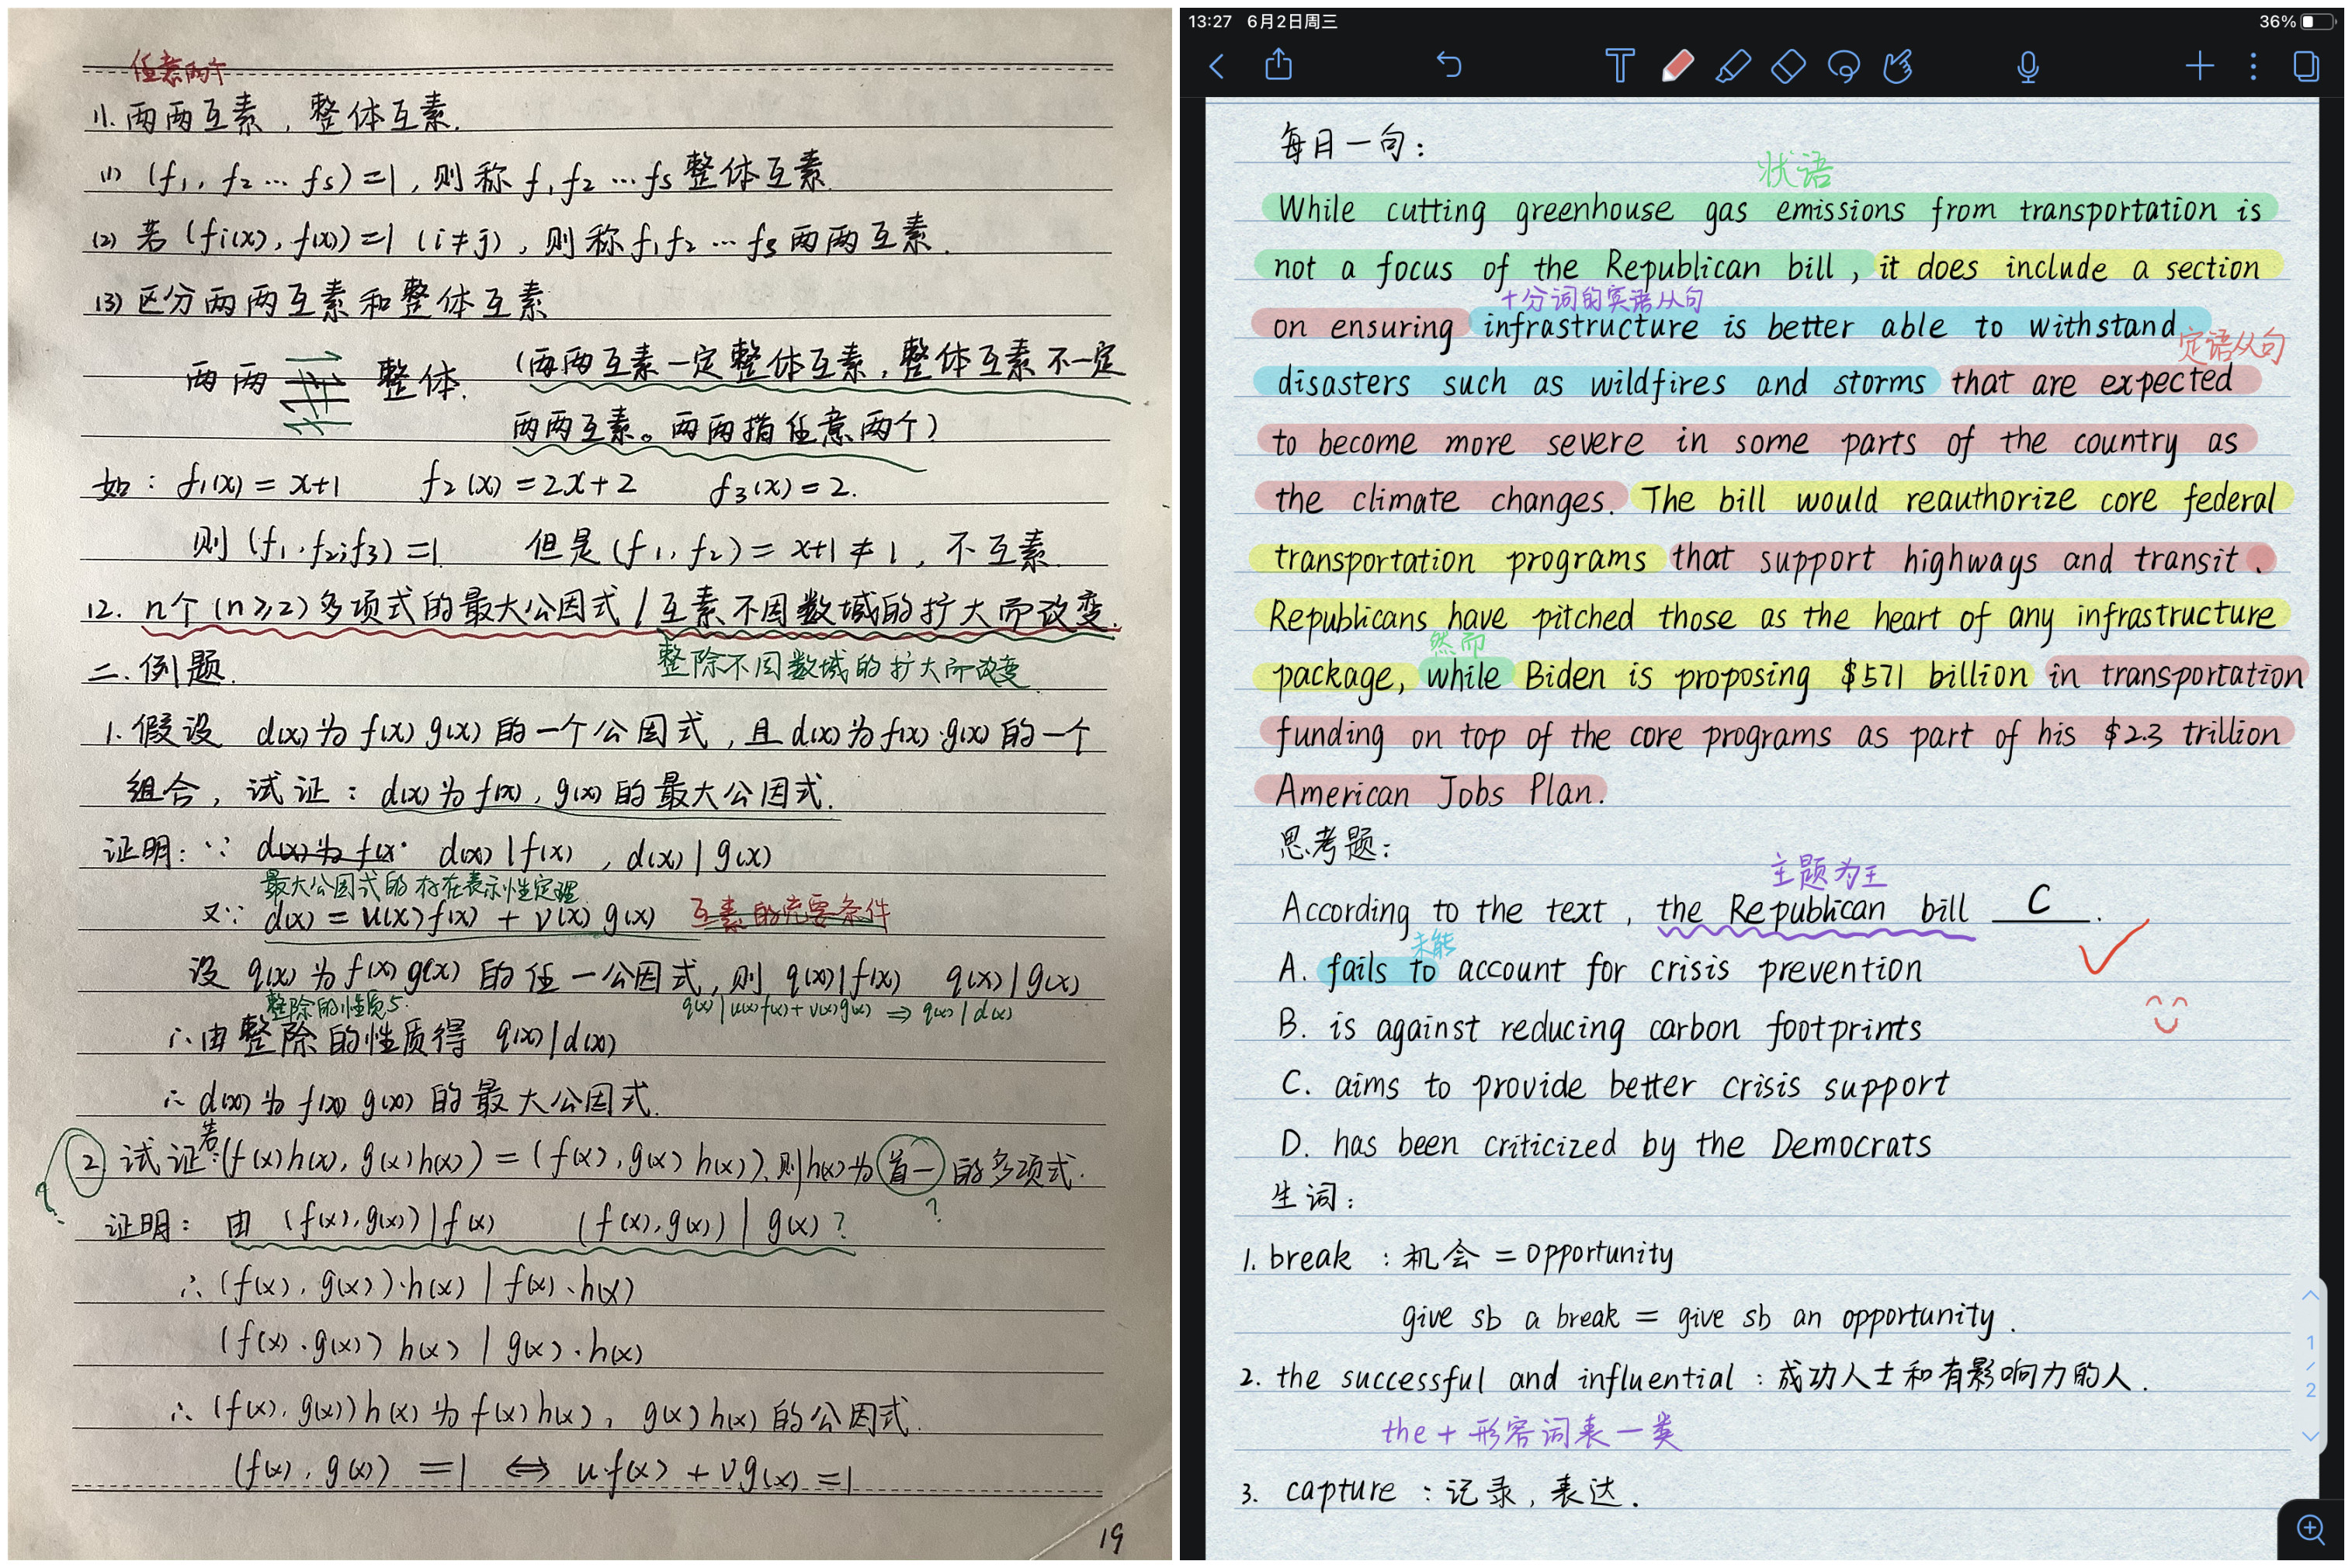 任意两个
11. 两两互素，整体互素.
(1) (f₁, f₂ … fs)=1, 则称 f₁ f₂ … fs 整体互素.
(2) 若 (fi(x), f(x))=1 (i≠j), 则称 f₁ f₂ … fs 两两互素.
(3) 区分两两互素和整体互素
两两 整体. (两两互素一定整体互素，整体互素不一定
两两互素。两两指任意两个)
如: f₁(x)=x+1 f₂(x)=2x+2 f₃(x)=2.
则 (f₁, f₂, f₃)=1 但是 (f₁, f₂)=x+1≠1, 不互素.
12. n个 (n≥2) 多项式的最大公因式/互素不因数域的扩大而改变.
整除不因数域的扩大而改变
二. 例题.
1. 假设 d(x)为 f(x) g(x) 的一个公因式, 且 d(x)为 f(x)·g(x) 的一个
组合, 试证: d(x)为 f(x), g(x) 的最大公因式.
证明: ∵ d(x)为 f(x) d(x)|f(x), d(x)|g(x)
最大公因式的存在表示性定理
又∵ d(x)=u(x)f(x)+v(x)g(x) 互素的充要条件
设 q(x)为 f(x) g(x) 的任一公因式, 则 q(x)|f(x) q(x)|g(x)
整除的性质5. q(x)|u(x)f(x)+v(x)g(x) ⇒ q(x)|d(x)
∴由整除的性质得 q(x)|d(x)
∴ d(x)为 f(x) g(x) 的最大公因式.
若
2 试证: (f(x)h(x), g(x)h(x))=(f(x), g(x) h(x)). 则h(x)为首一的多项式.
? ?
证明: 由 (f(x), g(x))|f(x) (f(x), g(x))|g(x)?
∴ (f(x), g(x))·h(x)|f(x)·h(x)
(f(x)·g(x)) h(x)|g(x)·h(x)
∴ (f(x), g(x))h(x)为 f(x)h(x), g(x)h(x) 的公因式.
(f(x), g(x))=1 ⇔ u·f(x)+vg(x)=1
19
13:27 6月2日周三 36%
T
每日一句:
状语
While cutting greenhouse gas emissions from transportation is
not a focus of the Republican bill, it does include a section
十分词的宾语从句
on ensuring infrastructure is better able to withstand
定语从句
disasters such as wildfires and storms that are expected
to become more severe in some parts of the country as
the climate changes. The bill would reauthorize core federal
transportation programs that support highways and transit.
Republicans have pitched those as the heart of any infrastructure
然而
package, while Biden is proposing $571 billion in transportation
funding on top of the core programs as part of his $2.3 trillion
American Jobs Plan.
思考题:
主题为主
According to the text, the Republican bill C.
未能
A. fails to account for crisis prevention
B. is against reducing carbon footprints
C. aims to provide better crisis support
D. has been criticized by the Democrats
生词:
1. break : 机会 = opportunity
give sb a break = give sb an opportunity.
2. the successful and influential : 成功人士和有影响力的人.
the + 形容词表一类
3. capture : 记录, 表达.
1
/
2